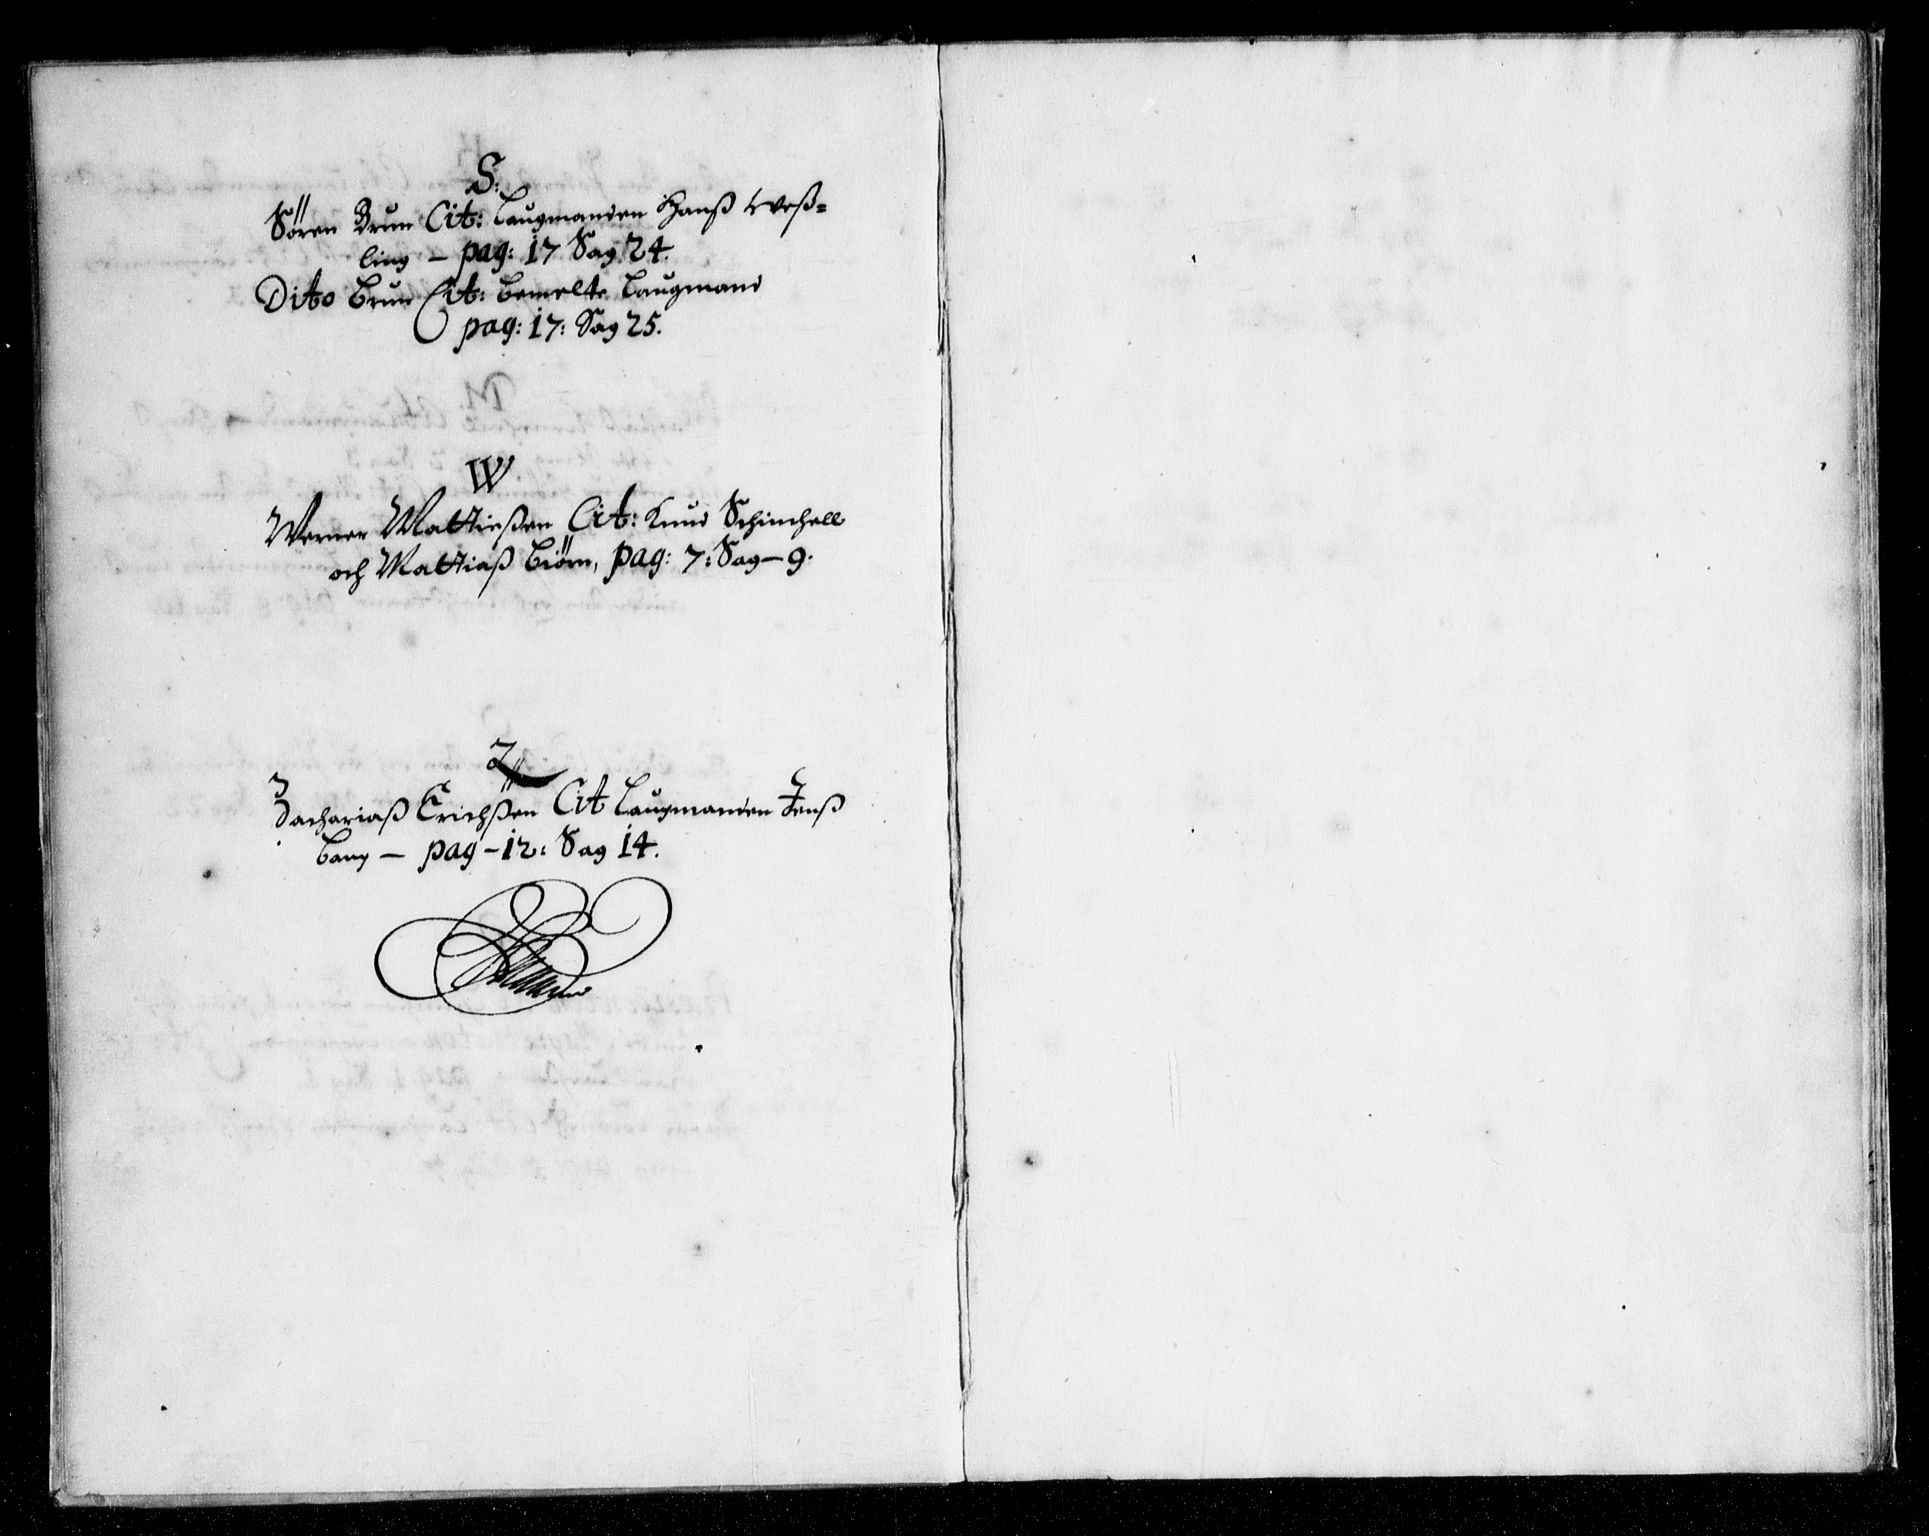 S:
Sören Brun Cit: Laugmanden Hanß Weß=
ling – pag: 17 Sag 24.
Dito Brun Cit: bemelte Laugmand
pag: 17: Sag 25.
W
Werner Mattießen Cit: Knud Schinchell
och Mattiaß Biörn, pag: 7: Sag – 9.
Z
Zachariaß Erichßen Cit Laugmanden Jenß
Bang – pag – 12: Sag 14.